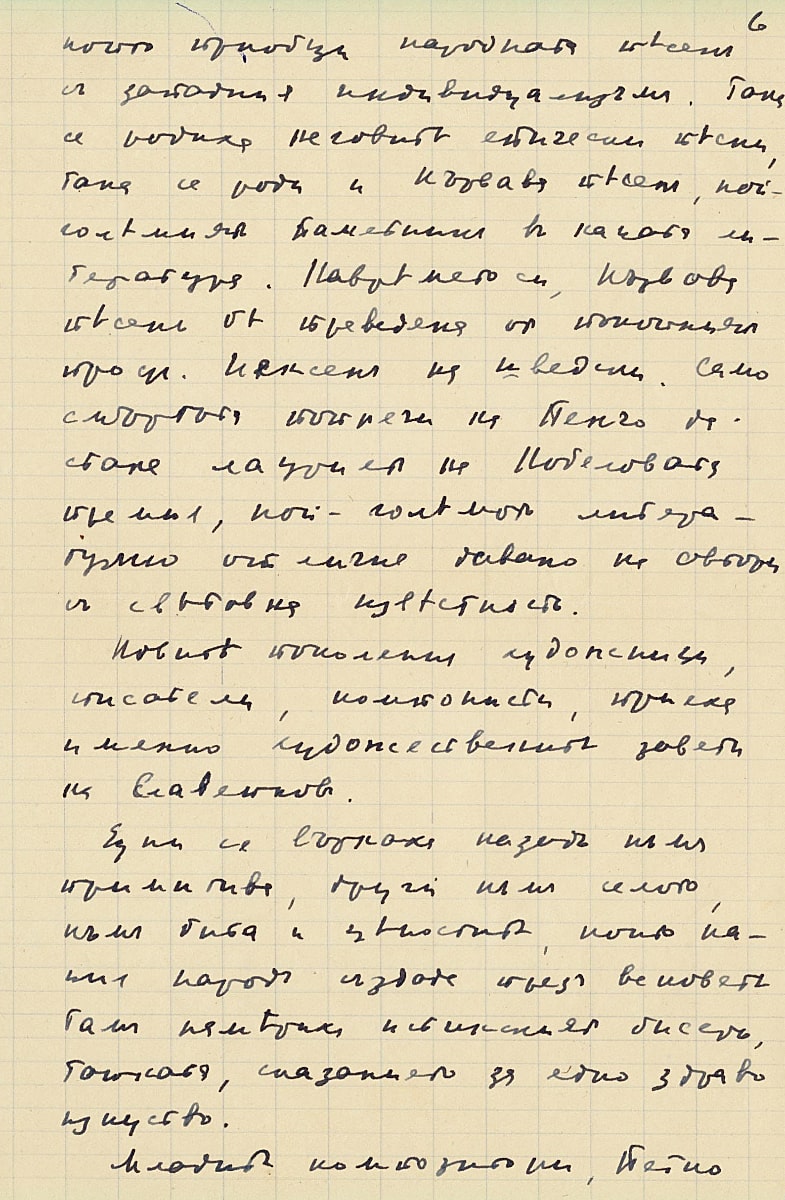 6
която приобщи народната пѣсень
съ западния индивидуализъмъ. Така
се родиха неговитѣ епически пѣсни,
така се роди и Кървава пѣсень, най-
голѣмиятъ паметникъ въ нашата ли-
тература. Наврѣмето си, Кървава
пѣсень бѣ преведена отъ покойниятъ
проф. Иенсенъ на шведски. Само
смъртьта попречи на Пенчо да
стане лауреатъ на Нобеловата
премия, най-голѣмото литера-
турно отличие давано на автори
съ свѣтовна извѣстность.
Новитѣ поколения художници,
писатели, композитори, приеха
именно художественитѣ завети
на Славейковъ.
Едни се върнаха назадъ къмъ
примитива, други къмъ селото,
къмъ бита и цѣностите, които на-
шия народъ създаде презъ вековетѣ
Тамъ намѣриха истинския бисеръ,
тайната, сказанието за едно здраво
изкуство.
Младитѣ композитори, Петко